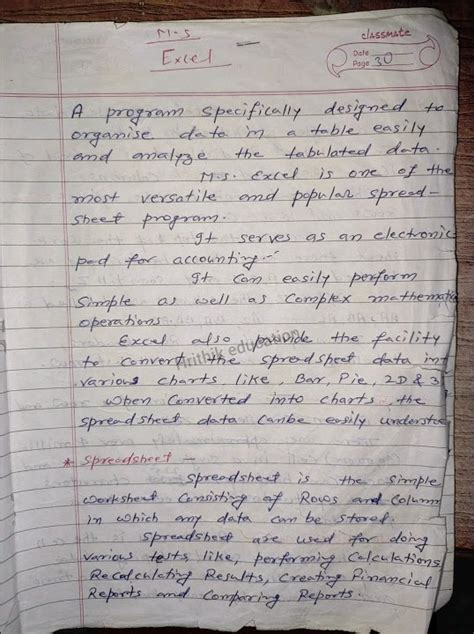 M.S
Excel —
classmate
Date
Page 30
A program specifically designed to
organise data in a table easily
and analyze the tabulated data.
M.S. Excel is one of the
most versatile and popular spread-
sheet program.
It serves as an electronic
pad for accounting.
It can easily perform
Simple as well as complex mathematic
operations
Excel also provide the facility
to convert the spreadsheet data int
various charts like, Bar, Pie, 2D & 3
when converted into charts, the
spreadsheet data canbe easily understoo
Hrithik education
* Spreadsheet —
Spreadsheet is the simple
worksheet consisting of Rows and Column
in which any data can be stored.
Spreadsheet are used for doing
various tests like, performing Calculations
Recalculating Results, creating Financial
Reports and Comparing Reports.